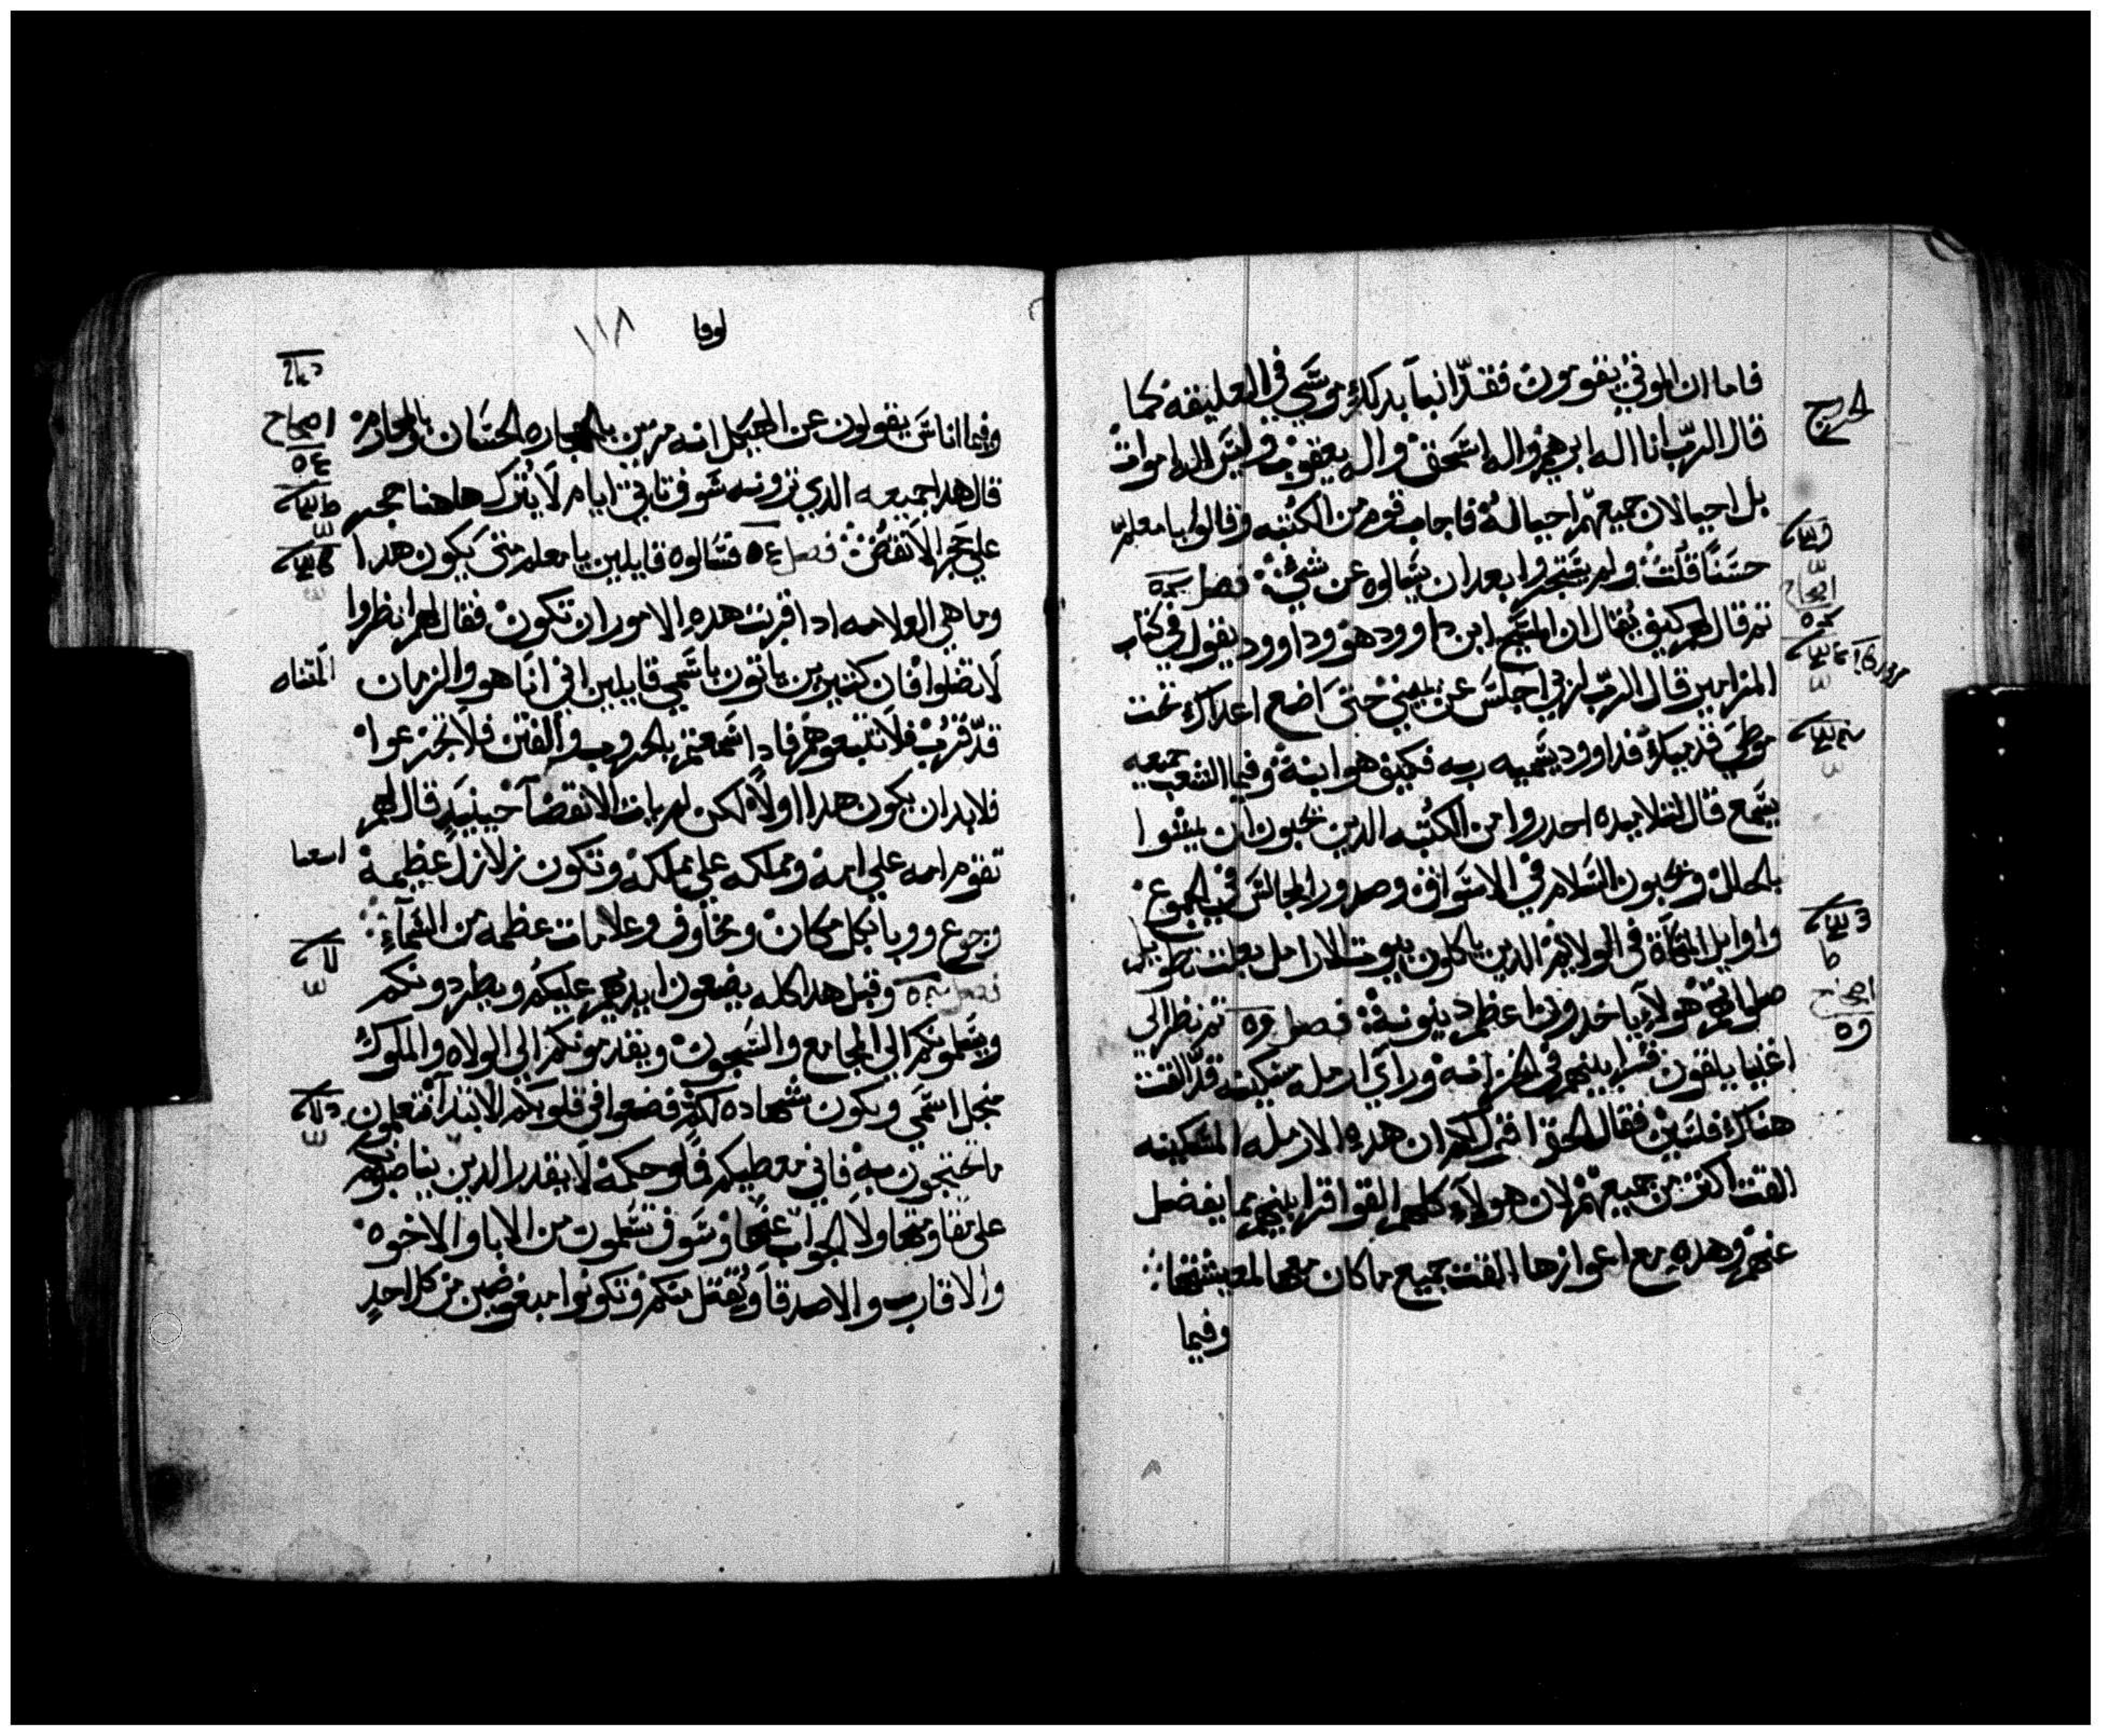 فاما ان الموتي يقومون فقد انبا بدلك موسي في العليقه كما
الخروج
قال الرب انا اله ابرهيم واله اسحق واله يعقوب وليس اله اموات
بل احيا لان جميعهم احيا له فاجاب قوم من الكتبه وقالوا يا معلم
حسنا قلت ولم يجتروا بعد ان يسالوه عن شيء فصل
اصحاح
تم قال لهم كيف يقال ان المسيح ابن داوود هو وداوود يقول في كتاب
المزامير قال الرب لربي اجلس عن يميني حتي اضع اعداك تحت
موطي قدميك فداوود يسميه ربه فكيف هو ابنه وفيما الشعب جميعه
يسمع قال لتلاميده احدروا من الكتبه الدين يحبون ان يمشوا
بالحلل ويحبون السلام في الاسواق وصدور المجالس في الجموع
واوايل المتكاة في الولايم الدين ياكلون بيوت الارامل بعلت تطويل
صلواتهم هولاء ياخدون اعظم دينونه فصل تم نظر الي
اصحاح
اغنيا يلقون قرابينهم في الخزانه وراي ارمله مسكينه قد القت
هناك فلسين فقال الحق اقول لكم ان هده الارمله المسكينه
القت اكتر من جميعهم لان هولاء كلهم القوا قرابينهم مما يفضل
عنهم وهده مع اعوازها القت جميع ما كان معها لمعيشتها
وفيما
لوقا
١١٨
وفيما اناس يقولون عن الهيكل انه مزين بالحجاره الحسان والمحارم
اصحاح
٥٤
قال هدا جميعه الدي ترونه سوف تاتي ايام لا يترك هاهنا حجر
علي حجر الا نقض فصل ٥٤ فسالوه قايلين يا معلم متي يكون هدا
وما هي العلامه ادا قربت هده الامور ان تكون فقال لهم انظروا
لا تضلوا فان كتيرين ياتون باسمي قايلين اني انا هو والزمان
قد قرب فلا تتبعوهم فادا سمعتم بالحروب والفتن فلا تجزعوا
فلا بد ان يكون هدا اولا لكن لم يات الانقضا حينيد قال لهم
تقوم امه علي امه ومملكه علي مملكه وتكون زلازل عظيمه
اسعيا
وجوع ووبا بكل مكان ومخاوف وعلامات عظمه من السماء
فصل وقبل هدا كله يضعون ايديهم عليكم ويطردونكم
ويسلمونكم الي المجامع والسجون ويقدمونكم الي الولاه والملوك
منجل اسمي ويكون شهاده لكم فضعوا في قلوبكم الا تبتدا فتعلمون
ما تحتجون به فاني معطيكم فما وحكمه لا يقدر الدين يناصبونكم
علي مقاومتها ولا الجواب عنها وسوف تسلمون من الابا والاخوه
والاقارب والاصدقا ويقتل منكم وتكونوا مبغوضين من كل احد